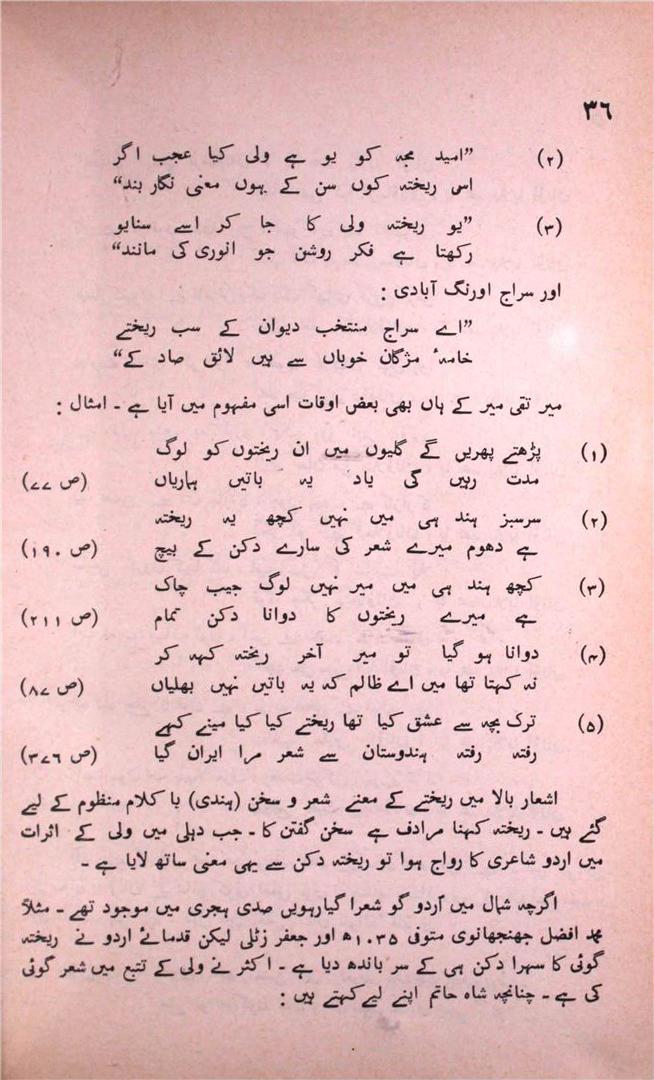 ۳٦
(۲) ”امید مجھ کو یو ہے ولی کیا عجب اگر
اس ریختہ کوں سن کے ہوں معنی نگار بند“
(۳) ”یو ریختہ ولی کا جا کر اسے سنایو
رکھتا ہے فکر روشن جو انوری کی مانند“
اور سراج اورنگ آبادی :
”اے سراج منتخب دیوان کے سب ریختے
خامۂ مژگان خوباں سے ہیں لائق صاد کے“
میر تقی میر کے ہاں بھی بعض اوقات اسی مفہوم میں آیا ہے ۔ امثال :
(۱) پڑھتے پھریں گے گلیوں میں ان ریختوں کو لوگ
مدت رہیں گی یاد یہ باتیں ہماریاں (ص ۷۷)
(۲) سرسبز ہند ہی میں نہیں کچھ یہ ریختہ
ہے دھوم میرے شعر کی سارے دکن کے بیچ (ص ۱۹۰)
(۳) کچھ ہند ہی میں میر نہیں لوگ جیب چاک
ہے میرے ریختوں کا دوانا دکن تمام (ص ۲۱۱)
(۴) دوانا ہو گیا تو میر آخر ریختہ کہہ کر
نہ کہتا تھا میں اے ظالم کہ یہ باتیں نہیں بھلیاں (ص ۸۷)
(۵) ترک بچہ سے عشق کیا تھا ریختے کیا کیا مینے کہے
رفتہ رفتہ ہندوستان سے شعر مرا ایران گیا (ص ۳۷٦)
اشعار بالا میں ریختے کے معنے شعر و سخن (ہندی) یا کلام منظوم کے لیے
گئے ہیں ۔ ریختہ کہنا مرادف ہے سخن گفتن کا ۔ جب دہلی میں ولی کے اثرات
میں اردو شاعری کا رواج ہوا تو ریختہ دکن سے یہی معنی ساتھ لایا ہے ۔
اگرچہ شمال میں اُردو گو شعرا گیارہویں صدی ہجری میں موجود تھے ۔ مثلاً
محمد افضل جھنجھانوی متوفی ۱۰۳۵ھ اور جعفر زٹلی لیکن قدمائے اردو نے ریختہ
گوئی کا سہرا دکن ہی کے سر باندھ دیا ہے ۔ اکثر نے ولی کے تتبع میں شعر گوئی
کی ہے ۔ چنانچہ شاہ حاتم اپنے لیے کہتے ہیں :